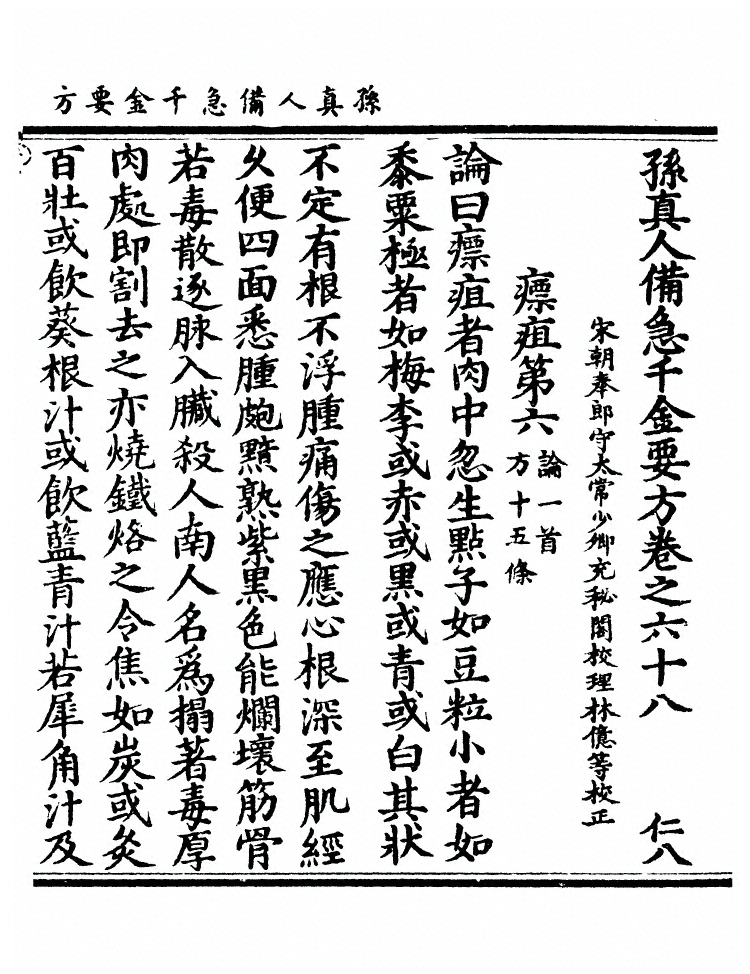 孫真人備急千金要方
孫真人備急千金要方卷之六十八 仁八
宋朝奉郎守太常少卿充秘閣校理林億等校正
瘭疽第六 論一首 方十五條
論曰瘭疽者肉中忽生點子如豆粒小者如
黍粟極者如梅李或赤或黑或青或白其狀
不定有根不浮腫痛傷之應心根深至肌經
久便四面悉腫皰黯熟紫黑色能爛壞筋骨
若毒散逐脉入臟殺人南人名爲搨著毒厚
肉處即割去之亦燒鐵烙之令焦如炭或灸
百壯或飲葵根汁或飲藍青汁若犀角汁及